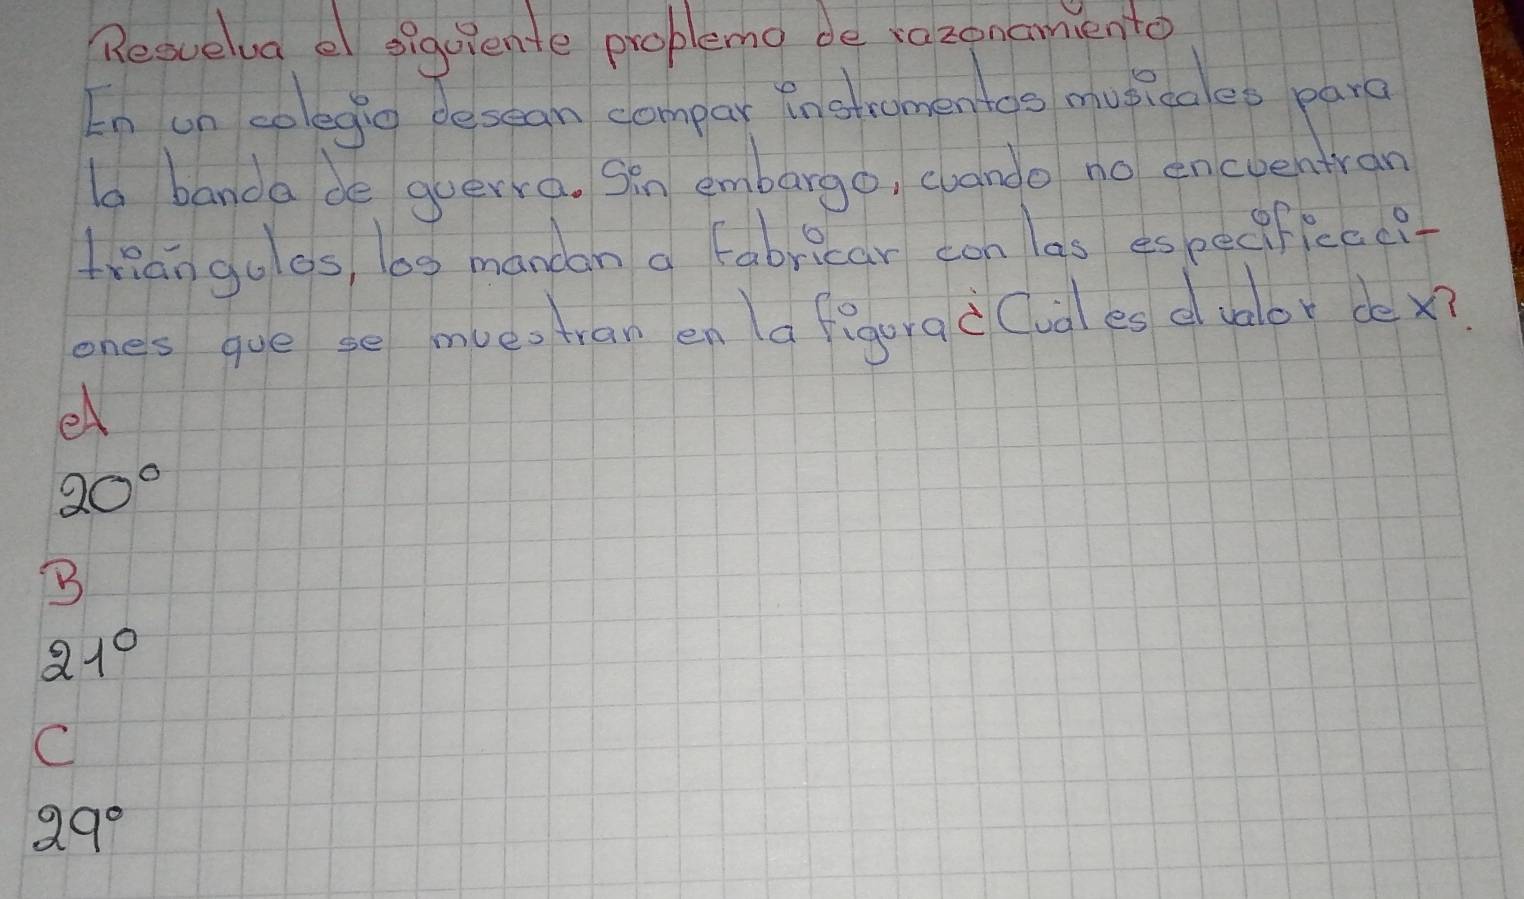 Resuelva el siguiente problema de razonamiento
En un colegio desean compar instrumentos musicales para
la banda de guerra. Sin embargo, cuando no encuentran
triángulos, los mandan a fabricar con las especificaci-
ones que se muestran en la figura ¿Cuál es el valor de x?
A
20°
B
21°
C
29°